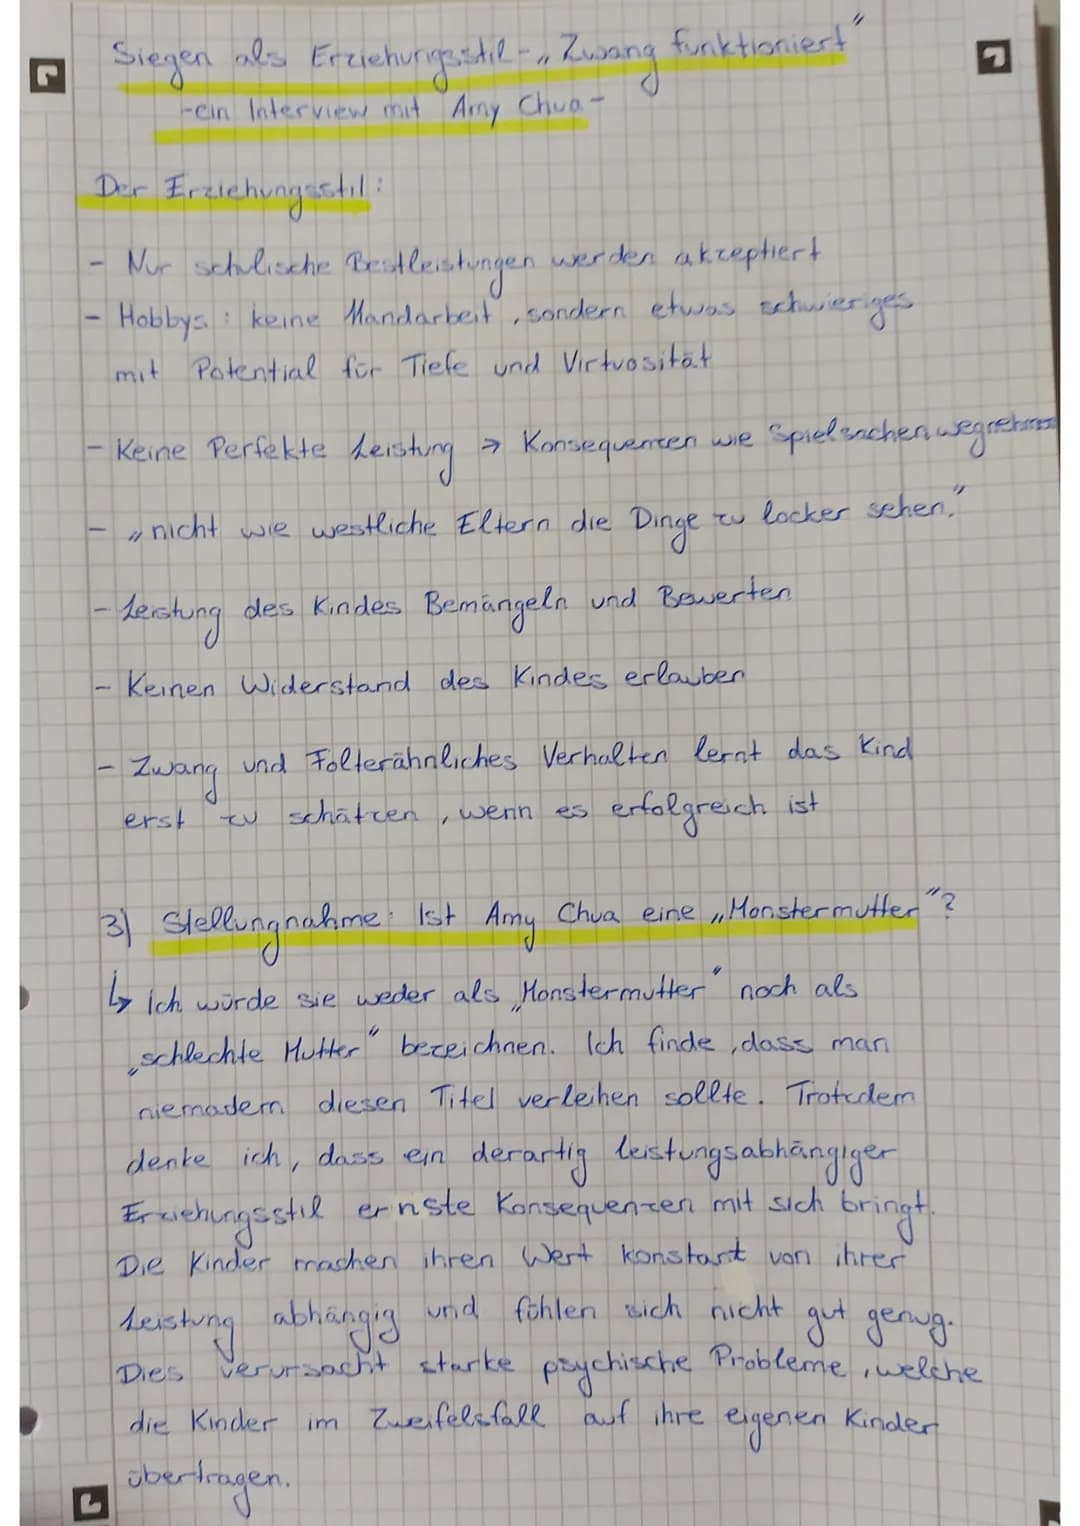 Siegen als Erziehungsstil - „Zwang funktioniert"
-ein Interview mit Amy Chua-
Der Erziehungsstil:
- Nur schulische Bestleistungen werden akzeptiert
- Hobbys: keine Handarbeit, sondern etwas schwieriges
mit Potential für Tiefe und Virtuosität
- Keine Perfekte Leistung → Konsequenzen wie Spielsachen wegnehmen
- „nicht wie westliche Eltern die Dinge zu locker sehen."
- Leistung des Kindes Bemängeln und Bewerten
- Keinen Widerstand des Kindes erlauben
- Zwang und Folterähnliches Verhalten lernt das Kind
erst zu schätzen, wenn es erfolgreich ist
3) Stellungnahme: Ist Amy Chua eine „Monstermutter"?
↳ Ich würde sie weder als „Monstermutter" noch als
„schlechte Mutter" bezeichnen. Ich finde, dass man
niemadem diesen Titel verleihen sollte. Trotzdem
denke ich, dass ein derartig leistungsabhängiger
Erziehungsstil ernste Konsequenzen mit sich bringt.
Die Kinder machen ihren Wert konstant von ihrer
Leistung abhängig und fühlen sich nicht gut genug.
Dies verursacht starke psychische Probleme, welche
die Kinder im Zweifelsfall auf ihre eigenen Kinder
übertragen.